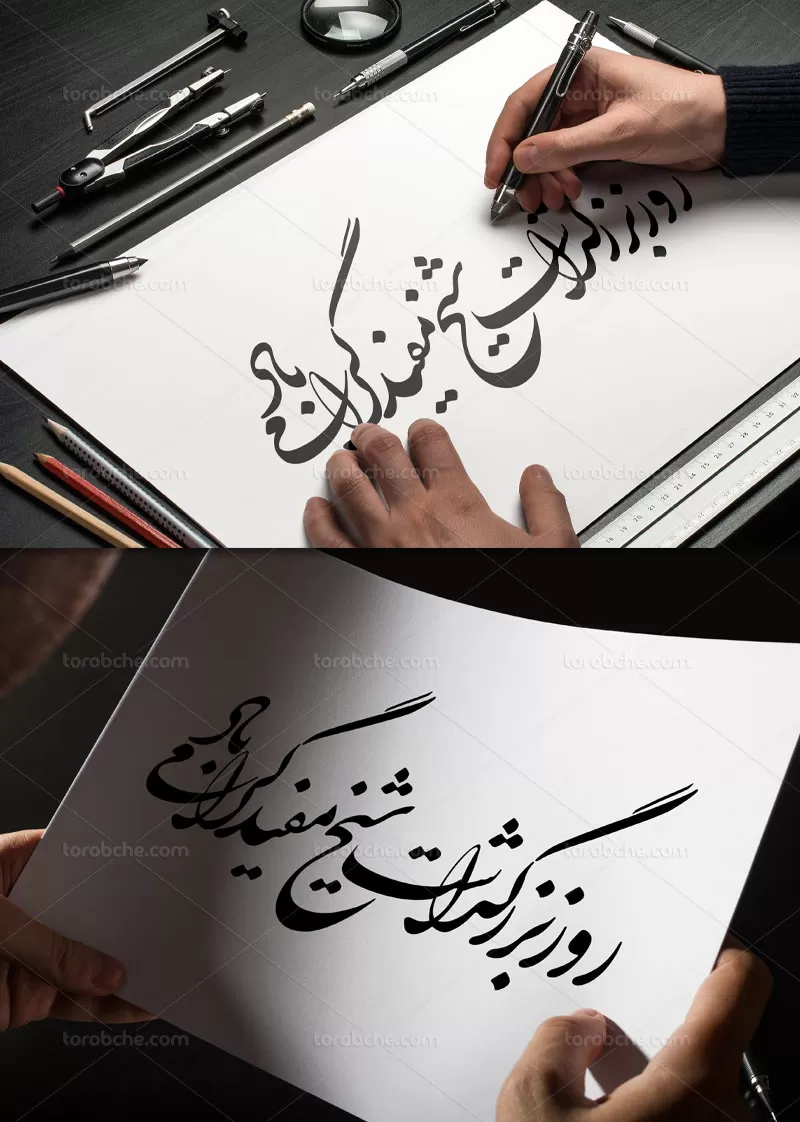 torobche.com torobche.com torobche.com
torobche.com torobche.com torobche.com
روز بزرگداشت شیخ مفید گرامی باد
torobche.com torobche.com torobche.com
torobche.com torobche.com torobche.com
روز بزرگداشت شیخ مفید گرامی باد
torobche.com torobche.com torobche.com
torobche.com torobche.com torobche.com